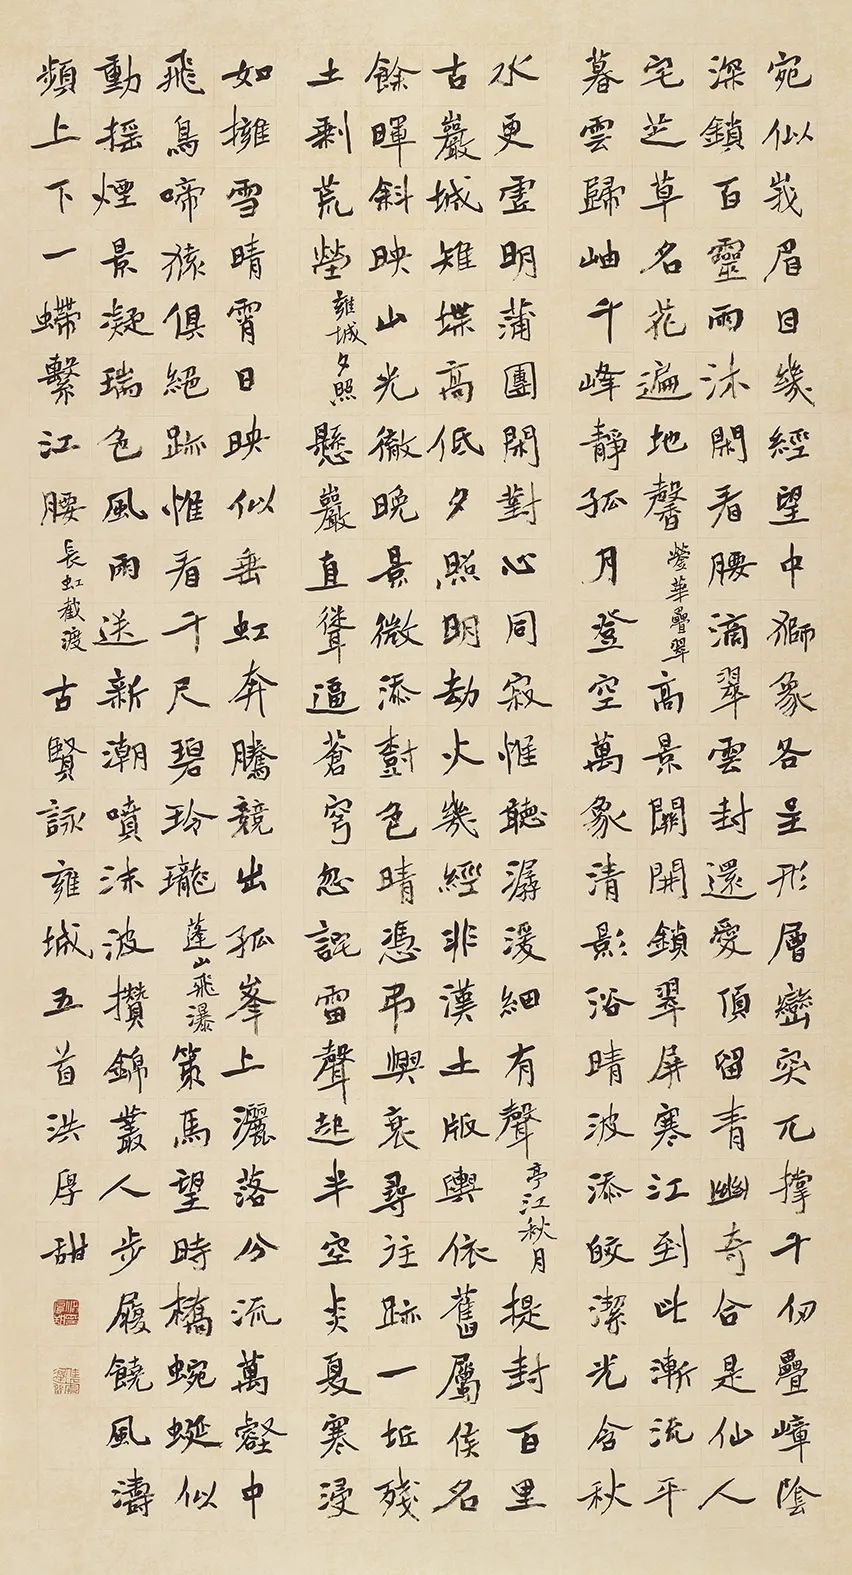 宛似峩眉日幾經望中獅象各呈形層巒突兀撑千仞疊嶂陰
深鎖百靈雨沐閑看腰滴翠雲封還愛頂留青幽奇合是仙人
宅芝草名花遍地馨瑩華疊翠高景關開鎖翠屏寒江到此漸流平
暮雲歸岫千峰靜孤月登空萬象清影浴晴波添皎潔光含秋
水更虛明蒲團閑對心同寂惟聽潺湲細有聲亭江秋月提封百里
古巖城雉堞高低夕照明劫火幾經非漢土版輿依舊屬侯名
餘暉斜映山光徹晚景微添樹色晴憑弔興衰尋往跡一坵殘
土剩荒塋雍城夕照懸巖直聳逼蒼穹忽詫雷聲起半空炎夏寒浸
如擁雪晴霄日映似垂虹奔騰競出孤峯上灑落分流萬壑中
飛鳥啼猿俱絕跡惟看千尺碧玲瓏蓬山飛瀑策馬望時橋蜿蜒似
動搖煙景凝瑞色風雨送新潮噴沫波攢錦叢人步履饒風濤
頻上下一螮繫江腰長虹截渡古賢詠雍城五首洪厚甜